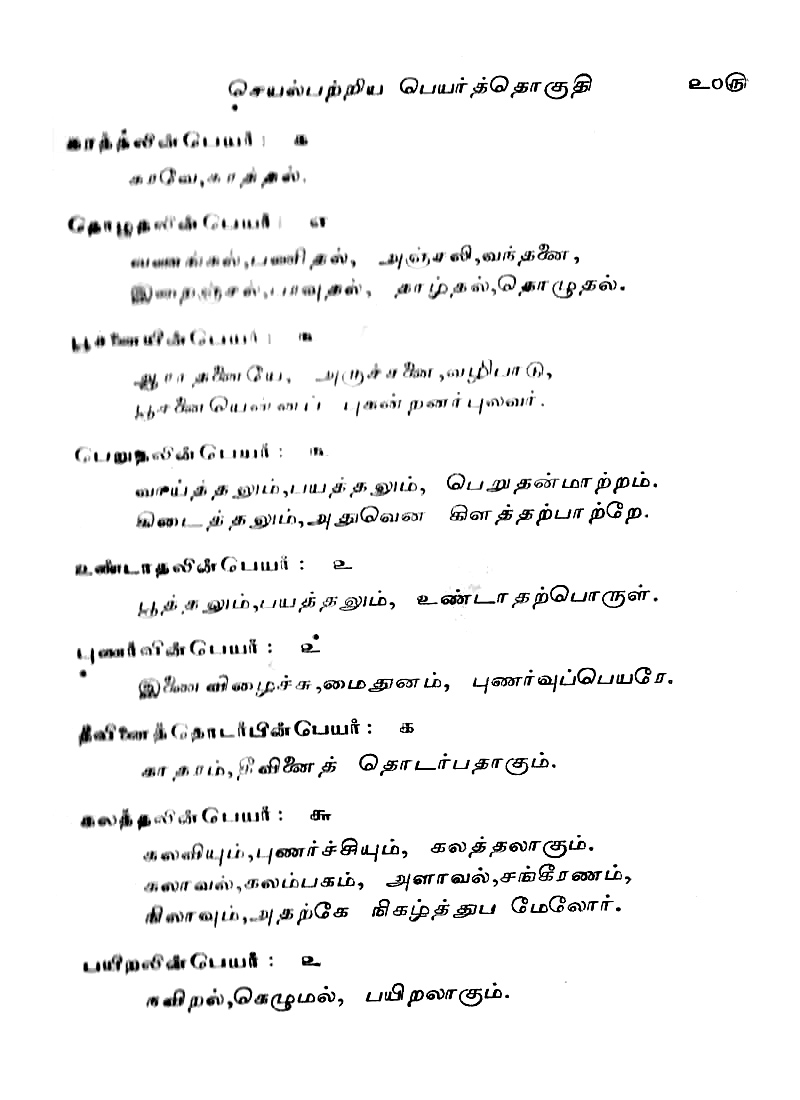 செயல்பற்றிய பெயர்த்தொகுதி ௨௦௫
காத்தலின்பெயர் : ௧
காவே,காத்தல்.
தொழுதலின்பெயர் : ௭
வணங்கல்,பணிதல், அஞ்சலி,வந்தனை,
இறைஞ்சல்,பரவுதல், தாழ்தல்,தொழுதல்.
பூசனையின்பெயர் : ௩
ஆராதனையே, அருச்சனை,வழிபாடு,
பூசனையென்னப் புகன்றனர்புலவர்.
பெறுதலின்பெயர் : ௩
வாய்த்தலும்,பயத்தலும், பெறுதன்மாற்றம்.
கிடைத்தலும்,அதுவென கிளத்தற்பாற்றே.
உண்டாதலின்பெயர் : ௨
பூத்தலும்,பயத்தலும், உண்டாதற்பொருள்.
புணர்வின்பெயர் : ௨
இணைவிழைச்சு,மைதுனம், புணர்வுப்பெயரே.
தீவினைத்தொடர்பின்பெயர் : ௧
காதரம்,தீவினைத் தொடர்பதாகும்.
கலத்தலின்பெயர் : ௬
கலவியும்,புணர்ச்சியும், கலத்தலாகும்.
கலாவல்,கலம்பகம், அளாவல்,சங்கீரணம்,
நிலாவும்,அதற்கே நிகழ்த்துப மேலோர்.
பயிறலின்பெயர் : ௨
நவிறல்,கெழுமல், பயிறலாகும்.